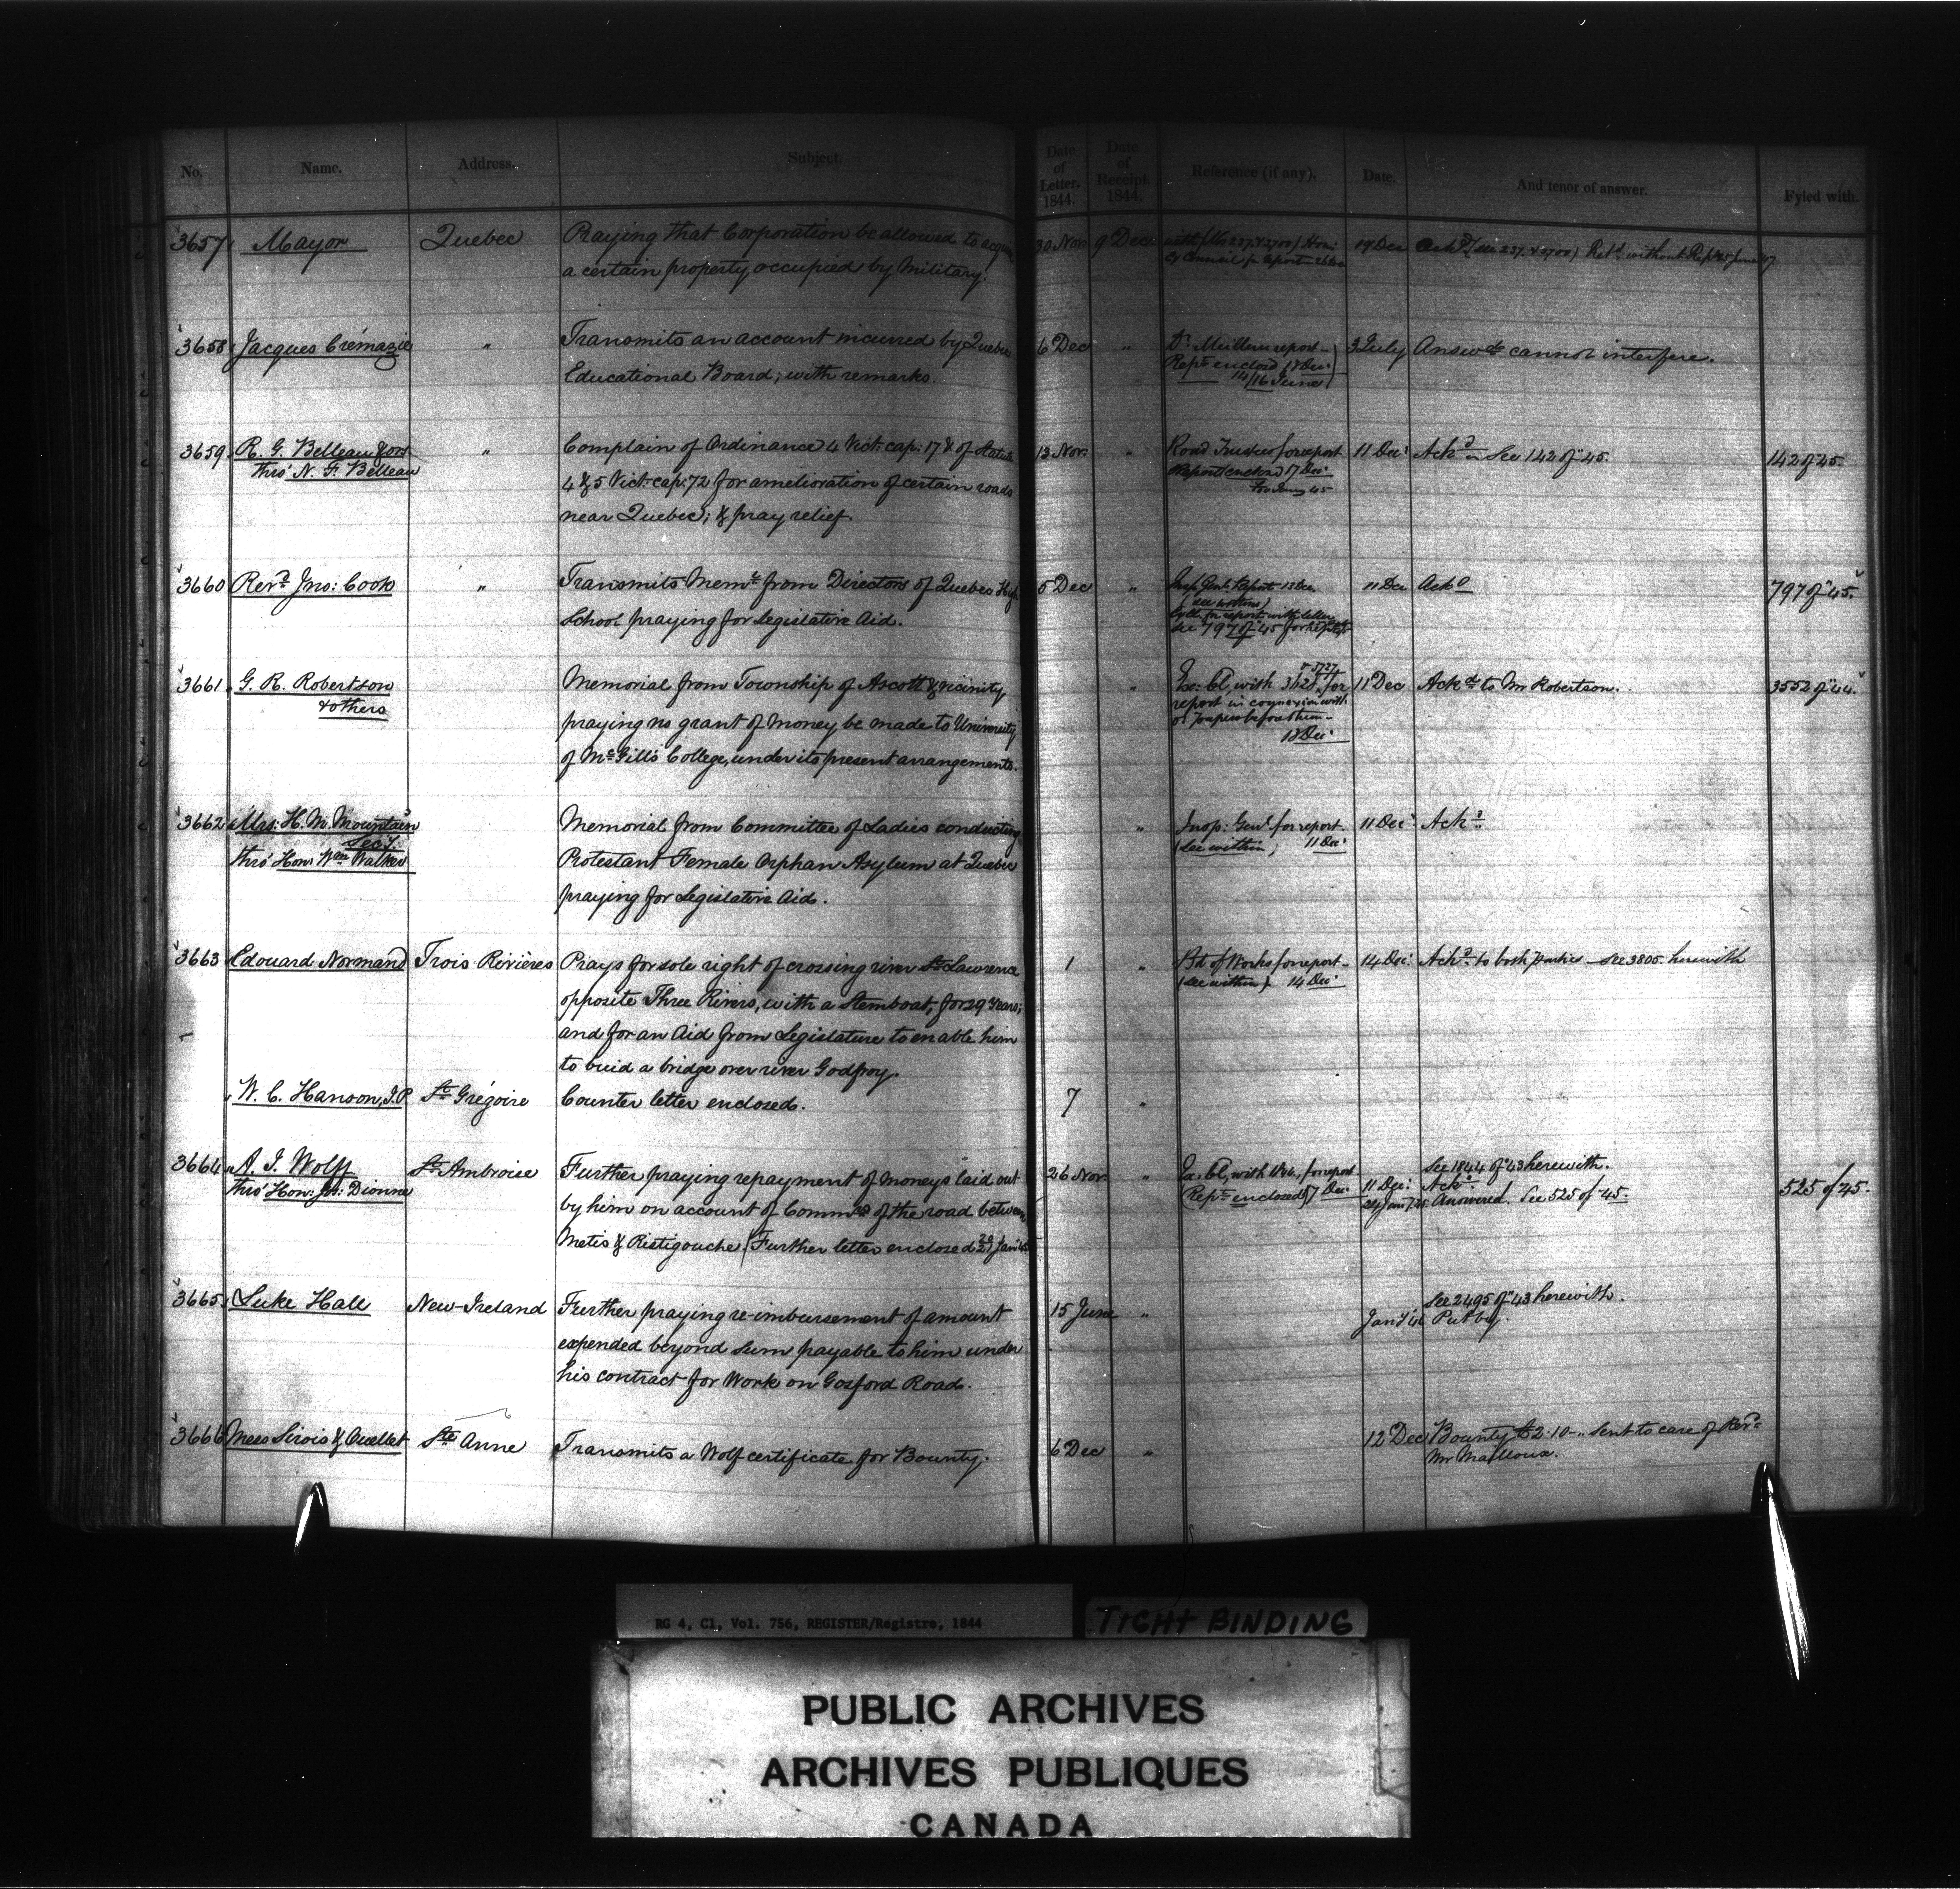 No. Name. Address. Subject. Date of Letter. 1844. Date of Receipt. 1844. Reference (if any). Date. And tenor of answer. Fyled with.
3657 Mayor Quebec Praying that Corporation be allowed to acquire 30 Nov. 9 Dec. 19 Dec Ackd
a certain property occupied by Military.
3658 Jacques Crémazie " Transmits an account incurred by Quebec 6 Dec " Dr. Meilleur report 3 July Answd cannot interfere.
Educational Board; with remarks. Rept enclosed 18 Dec.
14/16 June
3659 R. G. Belleau & ors " Complain of Ordinance 4 Vict: cap: 17 & of Statute 13 Nov. " Road Trustees for report 11 Dec. Ackd See 142 of "45. 142 of "45.
thro' N. F. Belleau
4 & 5 Vict: cap: 72 for amelioration of certain roads Report enclosed 17 Dec.
near Quebec; & pray relief.
3660 Revd. Jno: Cook " Transmits Memo from Directors of Quebec High 5 Dec " Insp. Genl. Report 13 Dec 11 Dec Ackd 797 of "45.
School praying for Legislative Aid. (see within)
see 797 of "45
3661 G. R. Robertson Memorial from Township of Ascott & vicinity, " Ex: Cl, with 3628, for 11 Dec Ackd to Mr Robertson. 3552 of "44.
& others
praying no grant of money be made to University report in connexion with
of McGill's College, under its present arrangements. 18 Dec.
3662 Mrs. H. M. Mountain Memorial from Committee of Ladies conducting " Insp: Genl. for report. 11 Dec. Ackd
Secy.
thro' Hon: Wm Walker Protestant Female Orphan Asylum at Quebec (see within) 11 Dec.
praying for Legislative Aid.
3663 Edouard Normand Trois Rivières Prays for sole right of crossing river St. Lawrence 1 " Bd of Works for report 14 Dec. Ackd. to both parties – see 3805. herewith
opposite Three Rivers, with a Stemboat, for 29 years; (see within) 14 Dec.
and for an Aid from Legislature to enable him
to buid a bridge over river Godfroy.
W. C. Hanson, J.P. St Grégoire Counter letter enclosed. 7 "
3664 A. J. Wolff St Ambroise Further praying repayment of moneys laid out 26 Nov. " Ex: Cl, with for report See 1844 of "43 herewith.
thro' Hon: Dionne (Rept enclosed) 17 Dec. 11 Dec: Ackd. 525 of 45.
by him on account of Commrs of the road between 24 Jany 45 Answered. See 525 of "45.
Metis & Ristigouche. (Further letter enclosed
3665 Luke Hall New-Ireland Further praying re-imbursement of amount 15 June " See 2495 of "43 herewith.
expended beyond sum payable to him under Put by.
his contract for Work on Gosford Road.
3666 Mess Sirois & Ouellet Ste Anne Transmits a Wolf certificate for Bounty. 6 Dec " 12 Dec Bounty £2.10 – sent to care of Revd
Mr Mailloux.
RG 4, C1, Vol. 756, REGISTER/Registre, 1844
TIGHT BINDING
PUBLIC ARCHIVES
ARCHIVES PUBLIQUES
CANADA